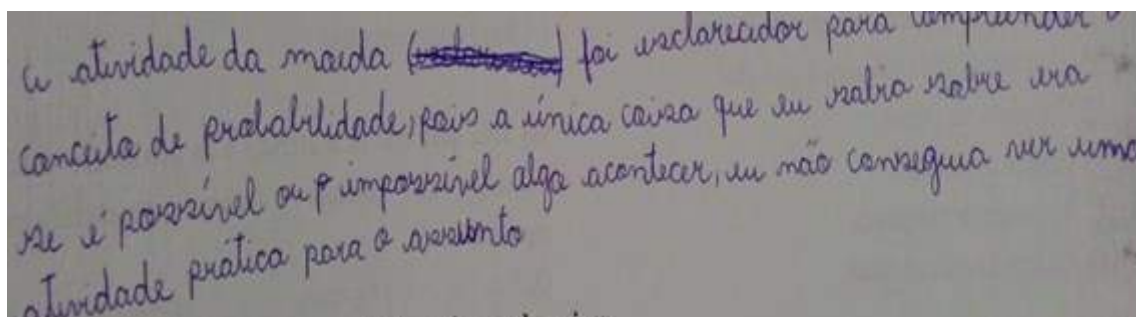 a atividade da moeda foi esclarecedor para compreender o
conceito de probabilidade, pois a única coisa que eu sabia sobre era
se é possível ou impossível algo acontecer, eu não conseguia ver uma
atividade prática para o assunto